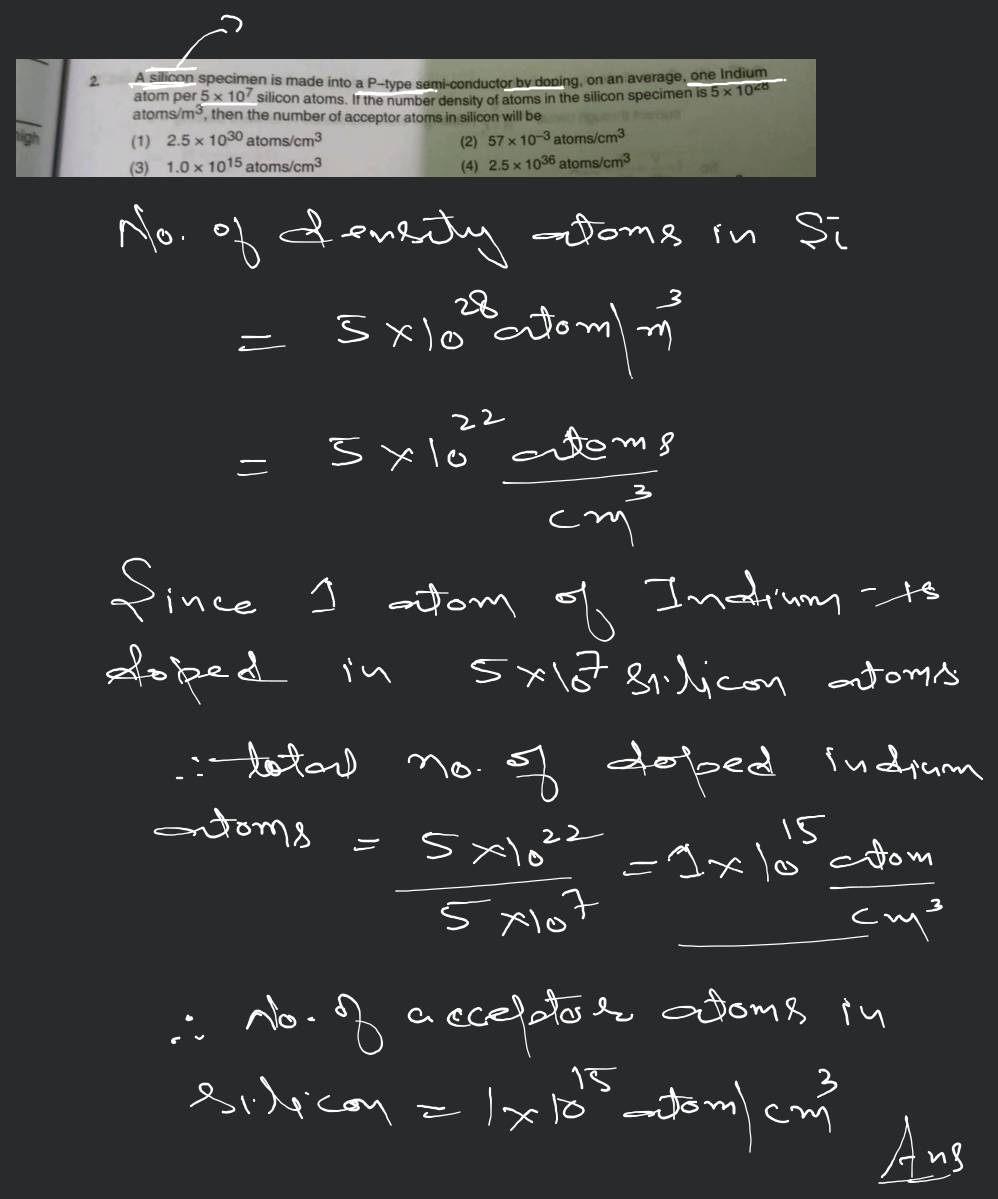 2. A silicon specimen is made into a P-type semi-conductor by doping, on an average, one Indium
atom per 5 × 10⁷ silicon atoms. If the number density of atoms in the silicon specimen is 5 × 10²⁸
atoms/m³, then the number of acceptor atoms in silicon will be
high
(1) 2.5 × 10³⁰ atoms/cm³ (2) 57 × 10⁻³ atoms/cm³
(3) 1.0 × 10¹⁵ atoms/cm³ (4) 2.5 × 10³⁶ atoms/cm³
No. of density atoms in Si
= 5 × 10²⁸ atom/m³
= 5 × 10²² atoms/cm³
Since 1 atom of Indium is
doped in 5 × 10⁷ silicon atoms
∴ total no. of doped indium
atoms = 5 × 10²² / 5 × 10⁷ = 1 × 10¹⁵ atom/cm³
∴ No. of acceptor atoms in
silicon = 1 × 10¹⁵ atom/cm³
Ans